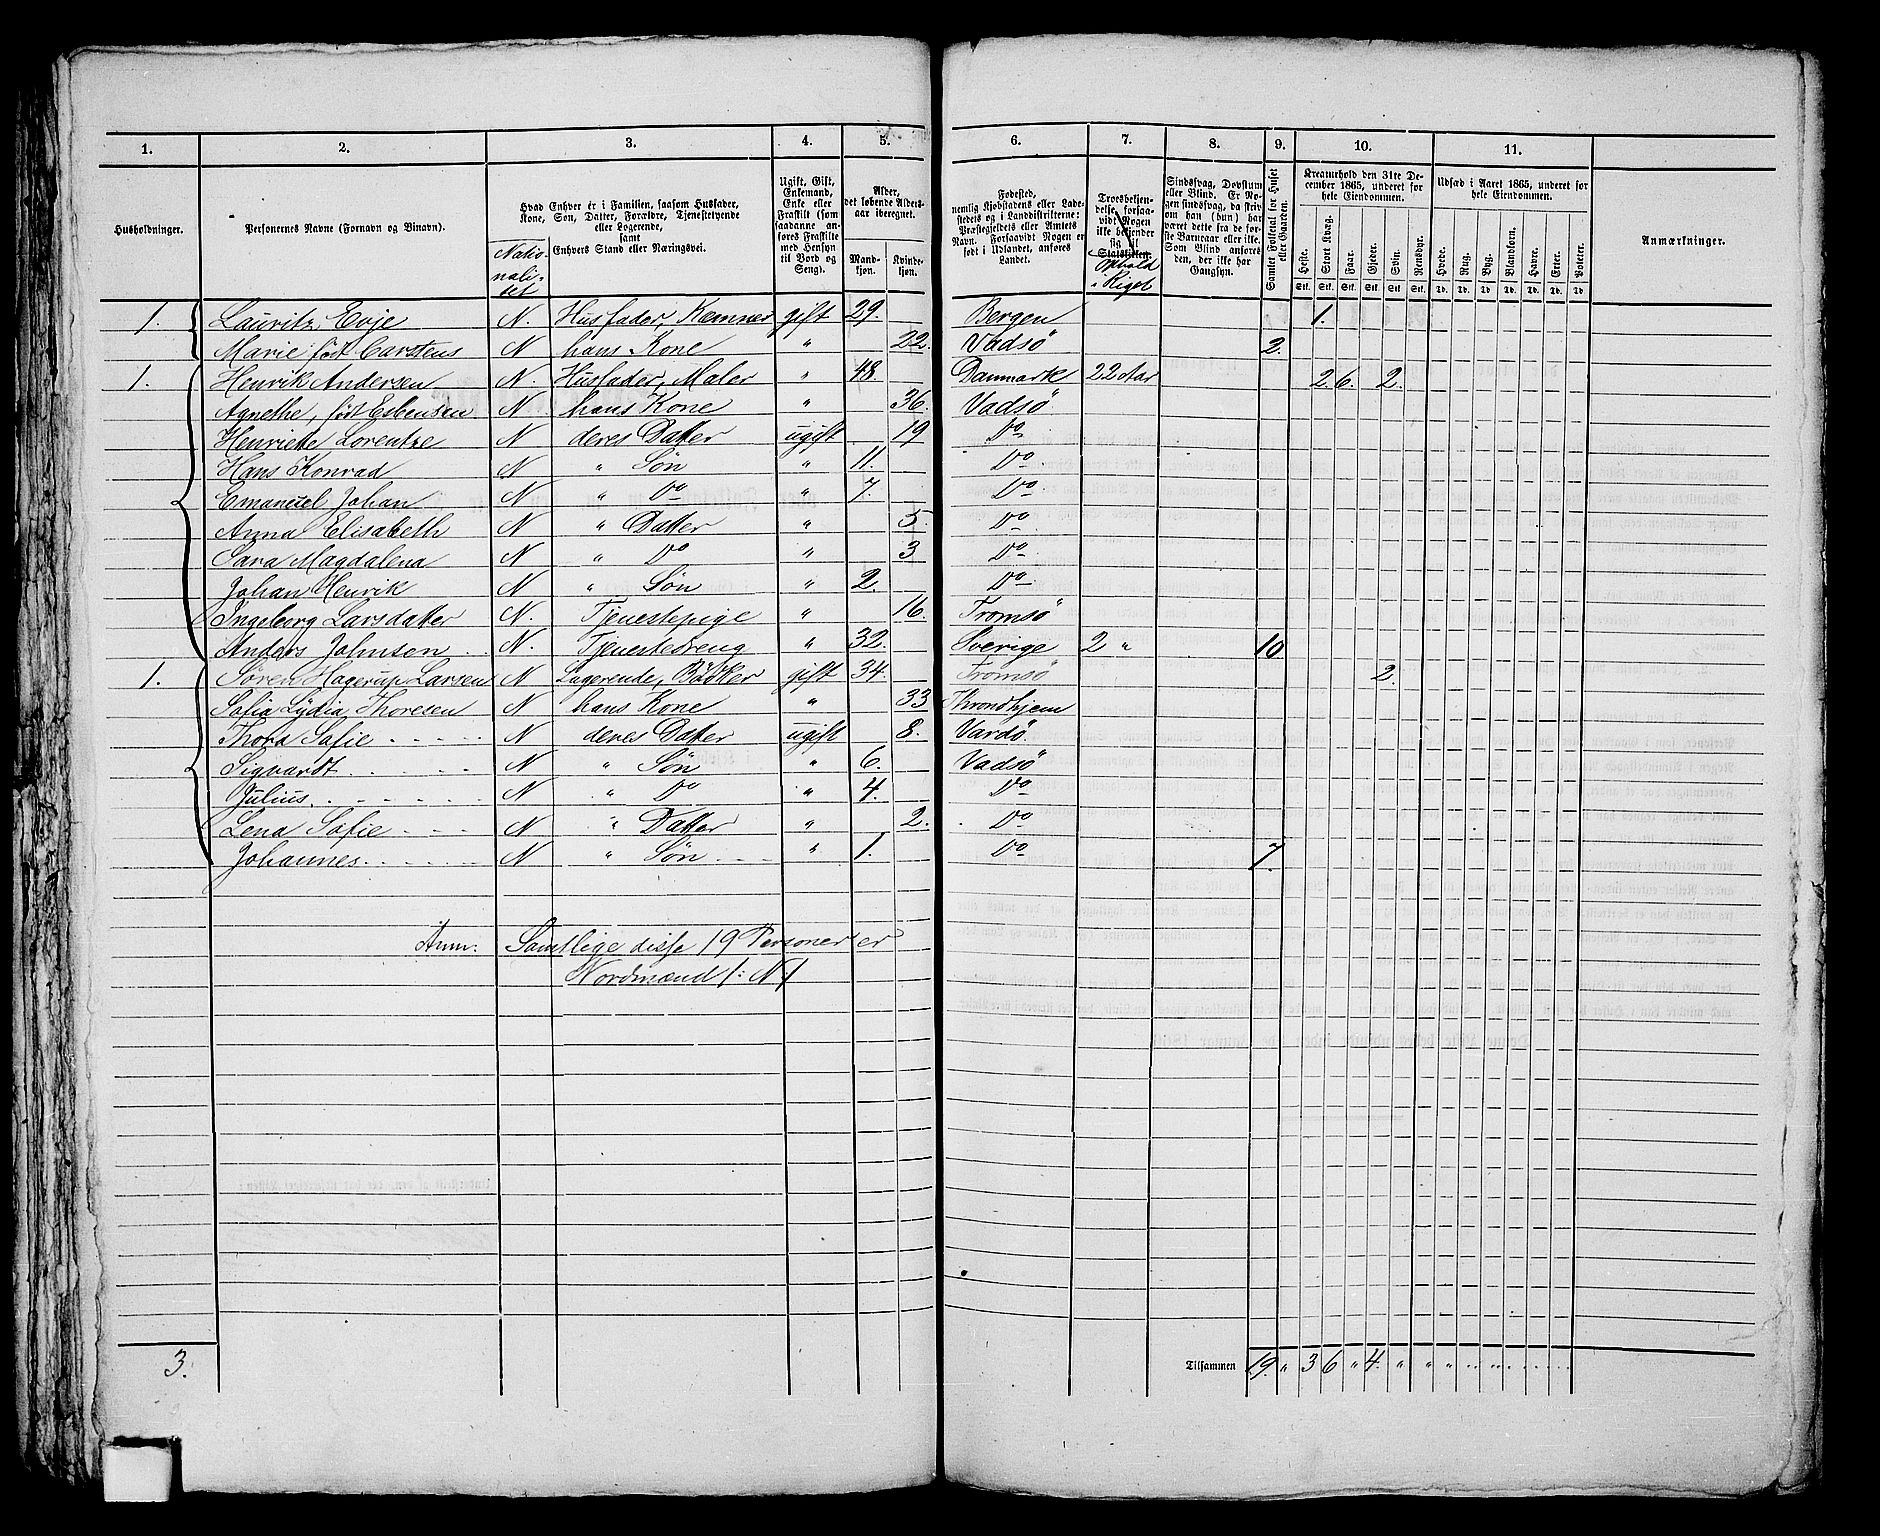 1. 2. 3. 4. 5. 6. 7. 8. 9. 10. 11.
Husholdninger.
Personernes Navne (Fornavn og Binavn).
Hvad Enhver er i Familien, saasom Husfader,
Kone, Søn, Datter, Forældre, Tjenestetyende
eller Logerende,
samt
Enhvers Stand eller Næringsvei.
Natio-
nali-
tet
Ugift, Gift,
Enkemand,
Enke eller
Fraskilt (som
saadanne an-
føres Fraskilte
med Hensyn
til Bord og
Seng).
Alder,
det løbende Alders-
aar iberegnet.
Mand-
kjøn.
Kvinde-
kjøn.
Fødested,
nemlig Kjøbstadens eller Lade-
stedets og i Landdistrikterne:
Præstegjeldets eller Amtets
Navn. Forsaavidt Nogen er
født i Udlandet, anføres
Landet.
Troesbekjen-
delse, forsaa-
vidt Nogen
ikke bekjender
sig til
Statskirken.
Ophold
i Riget
Sindssvag, Døvstum
eller Blind. Er No-
gen sindssvag, da skriv
om han (hun) har
været dette fra de før-
ste Barneaar eller ikke.
Som Blind anføres
den, der ikke har
Gangsyn.
Samlet Folketal for Huset
eller Gaarden.
Kreaturhold den 31te De-
cember 1865, underet for
hele Eiendommen.
Heste. Stort Kvæg. Faar. Gjeder. Svin. Rensdyr.
Stk. Stk. Stk. Stk. Stk. Stk.
Udsæd i Aaret 1865, underet for
hele Eiendommen.
Hvede. Rug. Byg. Blandkorn. Havre. Erter. Poteter.
Td. Td. Td. Td. Td. Td. Td.
Anmærkninger.
1. Lauritz Evje N. Husfader, Kemner gift 29. Bergen 1.
Marie født Carstens N hans Kone " 22. Vadsö 2.
1. Henrik Andersen N. Husfader, Maler " 48. Danmark 22 Aar 2 6. 2.
Agnethe, født Esbensen N hans Kone " 36. Vadsö
Henriette Lorentze N deres Datter ugift 19 Do
Hans Konrad N " Søn " 11. Do
Emanuel Johan N " Do " 7. Do
Anna Elisabeth N " Datter " 5. Do
Sara Magdalena N " Do " 3 Do
Johan Henrik N " Søn " 2. Do
Ingeborg Larsdatter N. Tjenestepige " 16. Tromsö
Anders Johnsen N. Tjenestedreng " 32. Sverige 2 " 10
1. Sören Hagerup Larsen N Logerende, Bödker gift 34. Tromsö 2.
Sofia Lydia Thoresen N hans Kone " 33 Throndhjem
Thora Sofie N deres Datter ugift 8. Vardö
Sigvardt N " Søn " 6. Vadsö
Julius N " Do " 4. Do
Lena Sofie N " Datter " 2. Do
Johannes N " Søn " 1. Do 7.
Anm. Samtlige disse 19 Personer er
Nordmænd /: N /
3.
Tilsammen 19. " 3 6 " 4. " " " " " " " " "